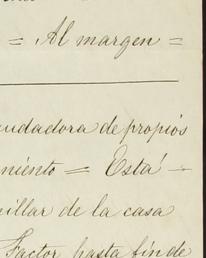 = Al margen =
audadora de propios
miento = Está
millar de la casa
Factor hasta fin de